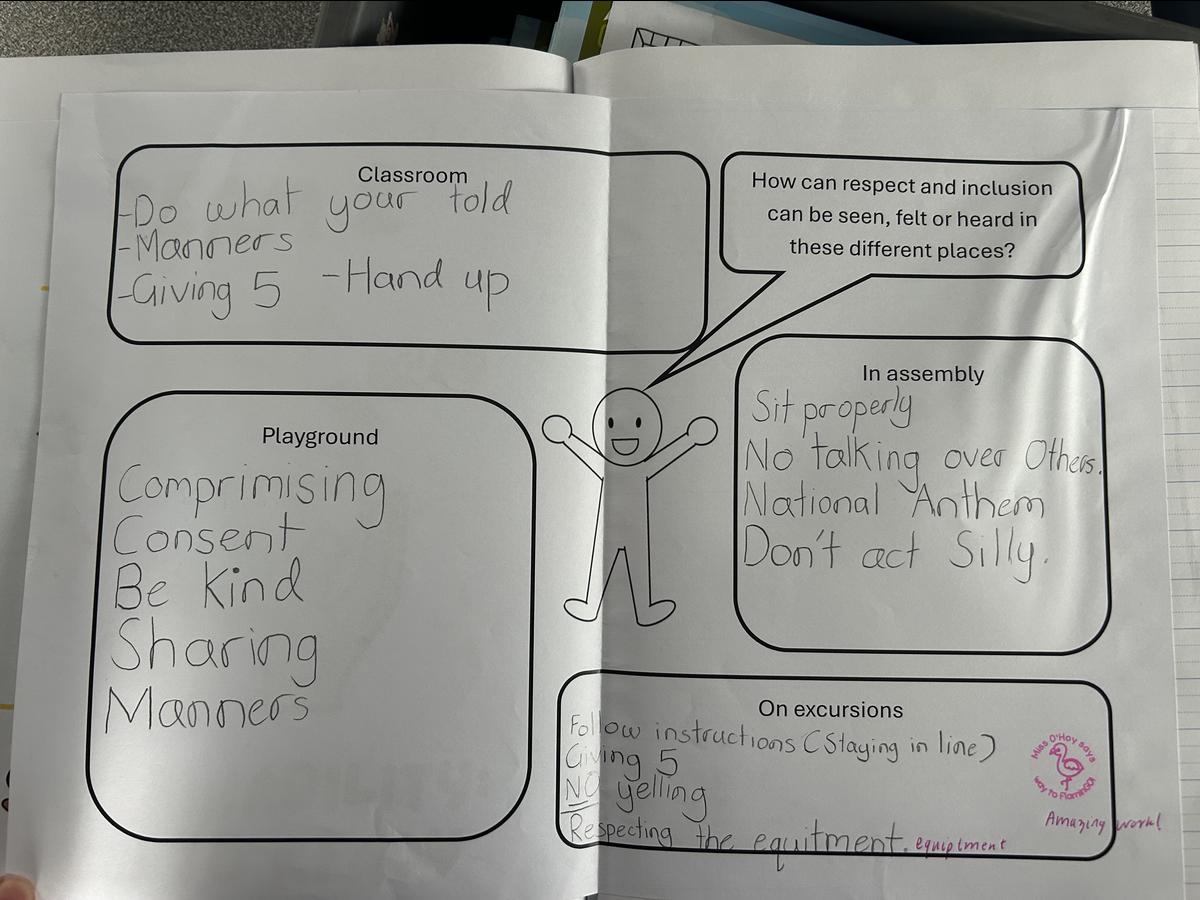 Classroom
-Do what your told
-Manners
-Giving 5 -Hand up
How can respect and inclusion
can be seen, felt or heard in
these different places?
Playground
Comprimising
Consent
Be kind
Sharing
Manners
In assembly
Sit properly
No talking over Others.
National Anthem
Don't act Silly.
On excursions
Follow instructions (Staying in line)
Giving 5
NO yelling
Respecting the equitment. equiptment
Miss O'Hoy says
way to FlaminGO!
Amazing work!